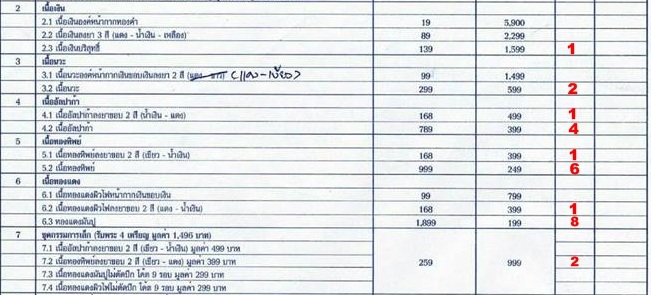 2 เนื้อเงิน
2.1 เนื้อเงินองค์หน้ากากทองคำ 19 5,900
2.2 เนื้อเงินลงยา 3 สี (แดง - น้ำเงิน - เหลือง) 89 2,299
2.3 เนื้อเงินบริสุทธิ์ 139 1,599 1
3 เนื้อนวะ
3.1 เนื้อนวะองค์หน้ากากเงินขอบเงินลงยา 2 สี (แดง-เขียว) 99 1,499
3.2 เนื้อนวะ 299 599 2
4 เนื้ออัลปาก้า
4.1 เนื้ออัลปาก้าลงยาขอบ 2 สี (น้ำเงิน - แดง) 168 499 1
4.2 เนื้ออัลปาก้า 789 399 4
5 เนื้อทองทิพย์
5.1 เนื้อทองทิพย์ลงยาขอบ 2 สี (เขียว - น้ำเงิน) 168 399 1
5.2 เนื้อทองทิพย์ 999 249 6
6 เนื้อทองแดง
6.1 เนื้อทองแดงผิวไฟหน้ากากเงินขอบเงิน 99 799
6.2 เนื้อทองแดงผิวไฟลงยาขอบ 2 สี (แดง - น้ำเงิน) 168 399 1
6.3 ทองแดงมันปู 1,899 199 8
7 ชุดกรรมการเล็ก (รับพระ 4 เหรียญ มูลค่า 1,496 บาท)
7.1 เนื้ออัลปาก้าลงยาขอบ 2 สี (เขียว - น้ำเงิน) มูลค่า 499 บาท
7.2 เนื้อทองทิพย์ลงยาขอบ 2 สี (เขียว - แดง) มูลค่า 399 บาท 259 999 2
7.3 เนื้อทองแดงมันปูไม่ตัดปีก โค้ด 9 รอบ มูลค่า 299 บาท
7.4 เนื้อทองแดงผิวไฟไม่ตัดปีก โค้ด 9 รอบ มูลค่า 299 บาท